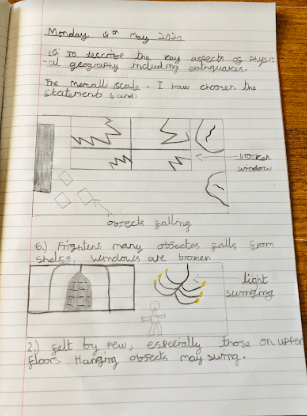 Monday 4th May 2020
LO To describe the key aspects of physic
-al geography including earthquakes.
The Mercalli scale. I have chosen the
statements 6 and
broken
window
objects falling
6.) Frightens many objects falls from
shelves, windows are broken
light
swinging
2.) felt by few, especially those on upper
floors. Hanging objects may swing.